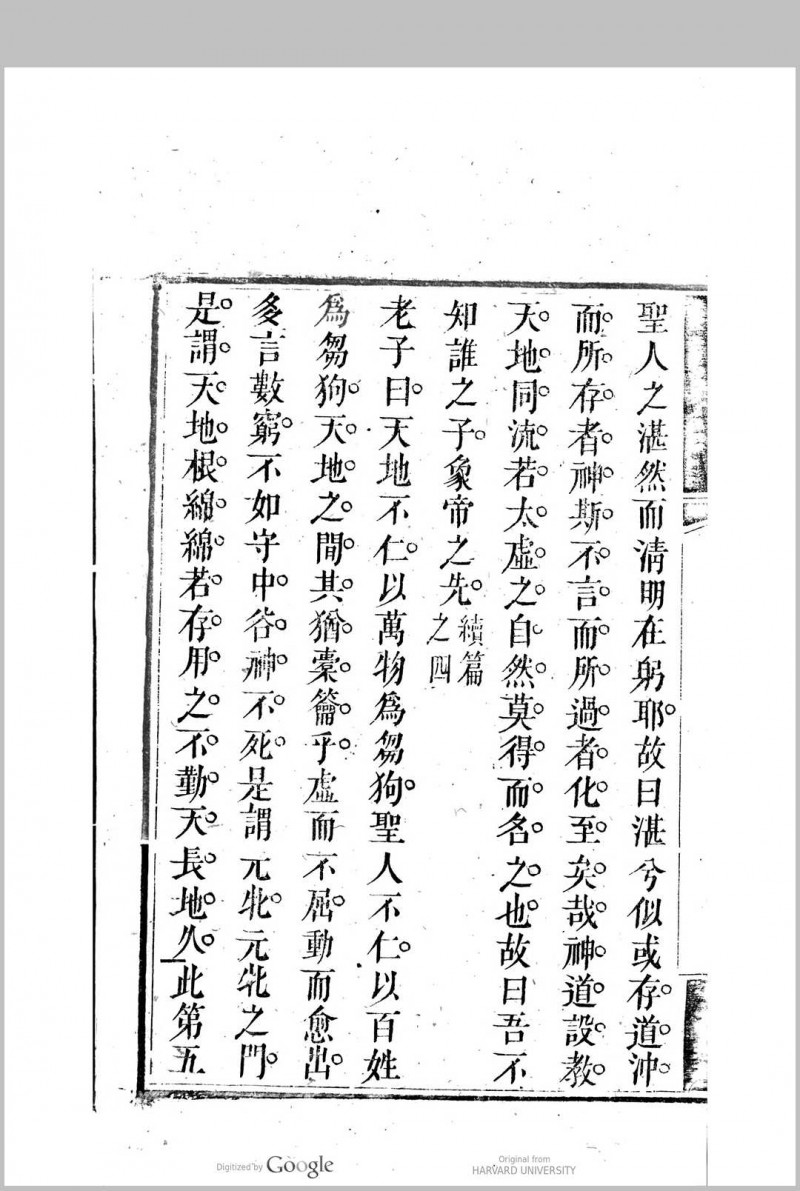 聖人之湛然而淸明在躬耶故曰湛兮似或存道沖
而所存者神斯不言而所過者化至矣哉神道設教
天地同流若太虛之自然莫得而名之也故曰吾不
知誰之子象帝之先續篇之四
老子曰天地不仁以萬物爲芻狗聖人不仁以百姓
爲芻狗天地之間其猶橐籥乎虛而不屈動而愈出
多言數窮不如守中谷神不死是謂元牝元牝之門
是謂天地根綿綿若存用之不勤天長地久此第五
Digitized by Google
Original from
HARVARD UNIVERSITY